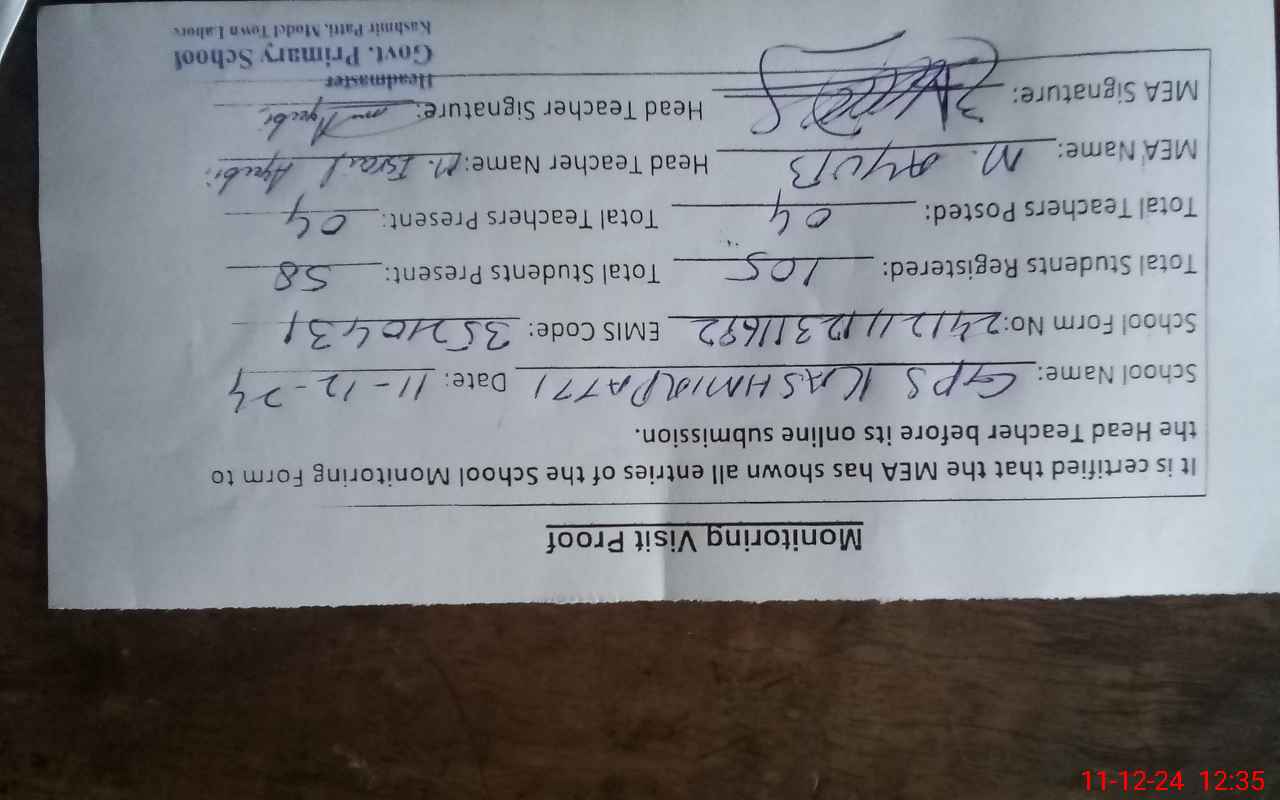 Monitoring Visit Proof
It is certified that the MEA has shown all entries of the School Monitoring Form to
the Head Teacher before its online submission.
School Name: GPS KASHMIR PATTI Date: 11-12-24
School Form No: EMIS Code: 35210431
Total Students Registered: 105 Total Students Present: 58
Total Teachers Posted: 04 Total Teachers Present: 04
MEA Name: M. AYUB Head Teacher Name: M. Israil Ayubi
MEA Signature: Head Teacher Signature:
Headmaster
Govt. Primary School
Kashmir Patti, Model Town Lahore
11-12-24 12:35